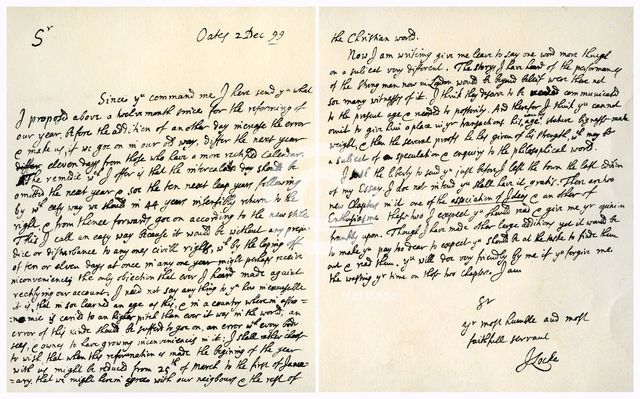 Sr
Oates 2 Dec 99
Since yu command me I here send yu what
I proposed above a twelvemonth since for the reforming of
our year, before the addition of another day increase the error
& make us, if we goe on in our old way, differ the next year
eleven days from those who have a more rectified Calendar.
The remedie wch I offer is that the intercalar day should be
omitted the next year & soe the ten next leap years following
by wch easy way we should in 44 years insensibly return to the
right & from thence forward, goe on according to the new stile
This I call an easy way because it would be without any preju-
dice or disturbance to any ones civill rights, wch by the loping off
of ten or eleven days at once in any one year might perhaps receive
inconvenience, the only objection that ever I heard made against
rectifying our account. I need not say any thing to yu how inexcusable
it is that in soe learned an age as this, & in a country wherein astro-
nomie is caried to an higher pitch than ever it was in the world, an
error of this kinde should be suffered to goe on, an error wch every body
sees, & owns to have growing inconveniences in it; I shall rather chose
to wish that when this reformation is made the begining of the year
with us might be reduced from 25th of March to the first of Janu-
ary, that we might herein agree with our neighbours & the rest of
the Christian world.
Now I am writing give me leave to say one word more though
on a subject very different. The storys I have heard of the performances
of the strong man now in London would be beyond beleif were there not
soe many witnesses of it. I think they deserve to be communicated
to the present age & to posterity. And therefor I think yu cannot
omit to give him a place in yr transactions his age, stature bignesse make
weight, & then the several proofs he has given of his strength, wch may be
a subject of speculation & enquiry to the philosophical world.
I took the liberty to send yu just before I left the town the last edition
of my Essay I do not intend yu shall have it gratis. There are two
new Chapters in it one of the association of Ideas & an other of
Enthusiasme these two I expect yu should read & give me yr opinion
frankly upon. Though I have made other large additions yet it would be
to make yu pay too dear to expect yu should be at the taske to finde them
out & read them. yu will doe very friendly by me if yu forgive me
the wasting yr time on these two chapters. I am
Sr
yr most humble and most
faithfull servant
J Locke